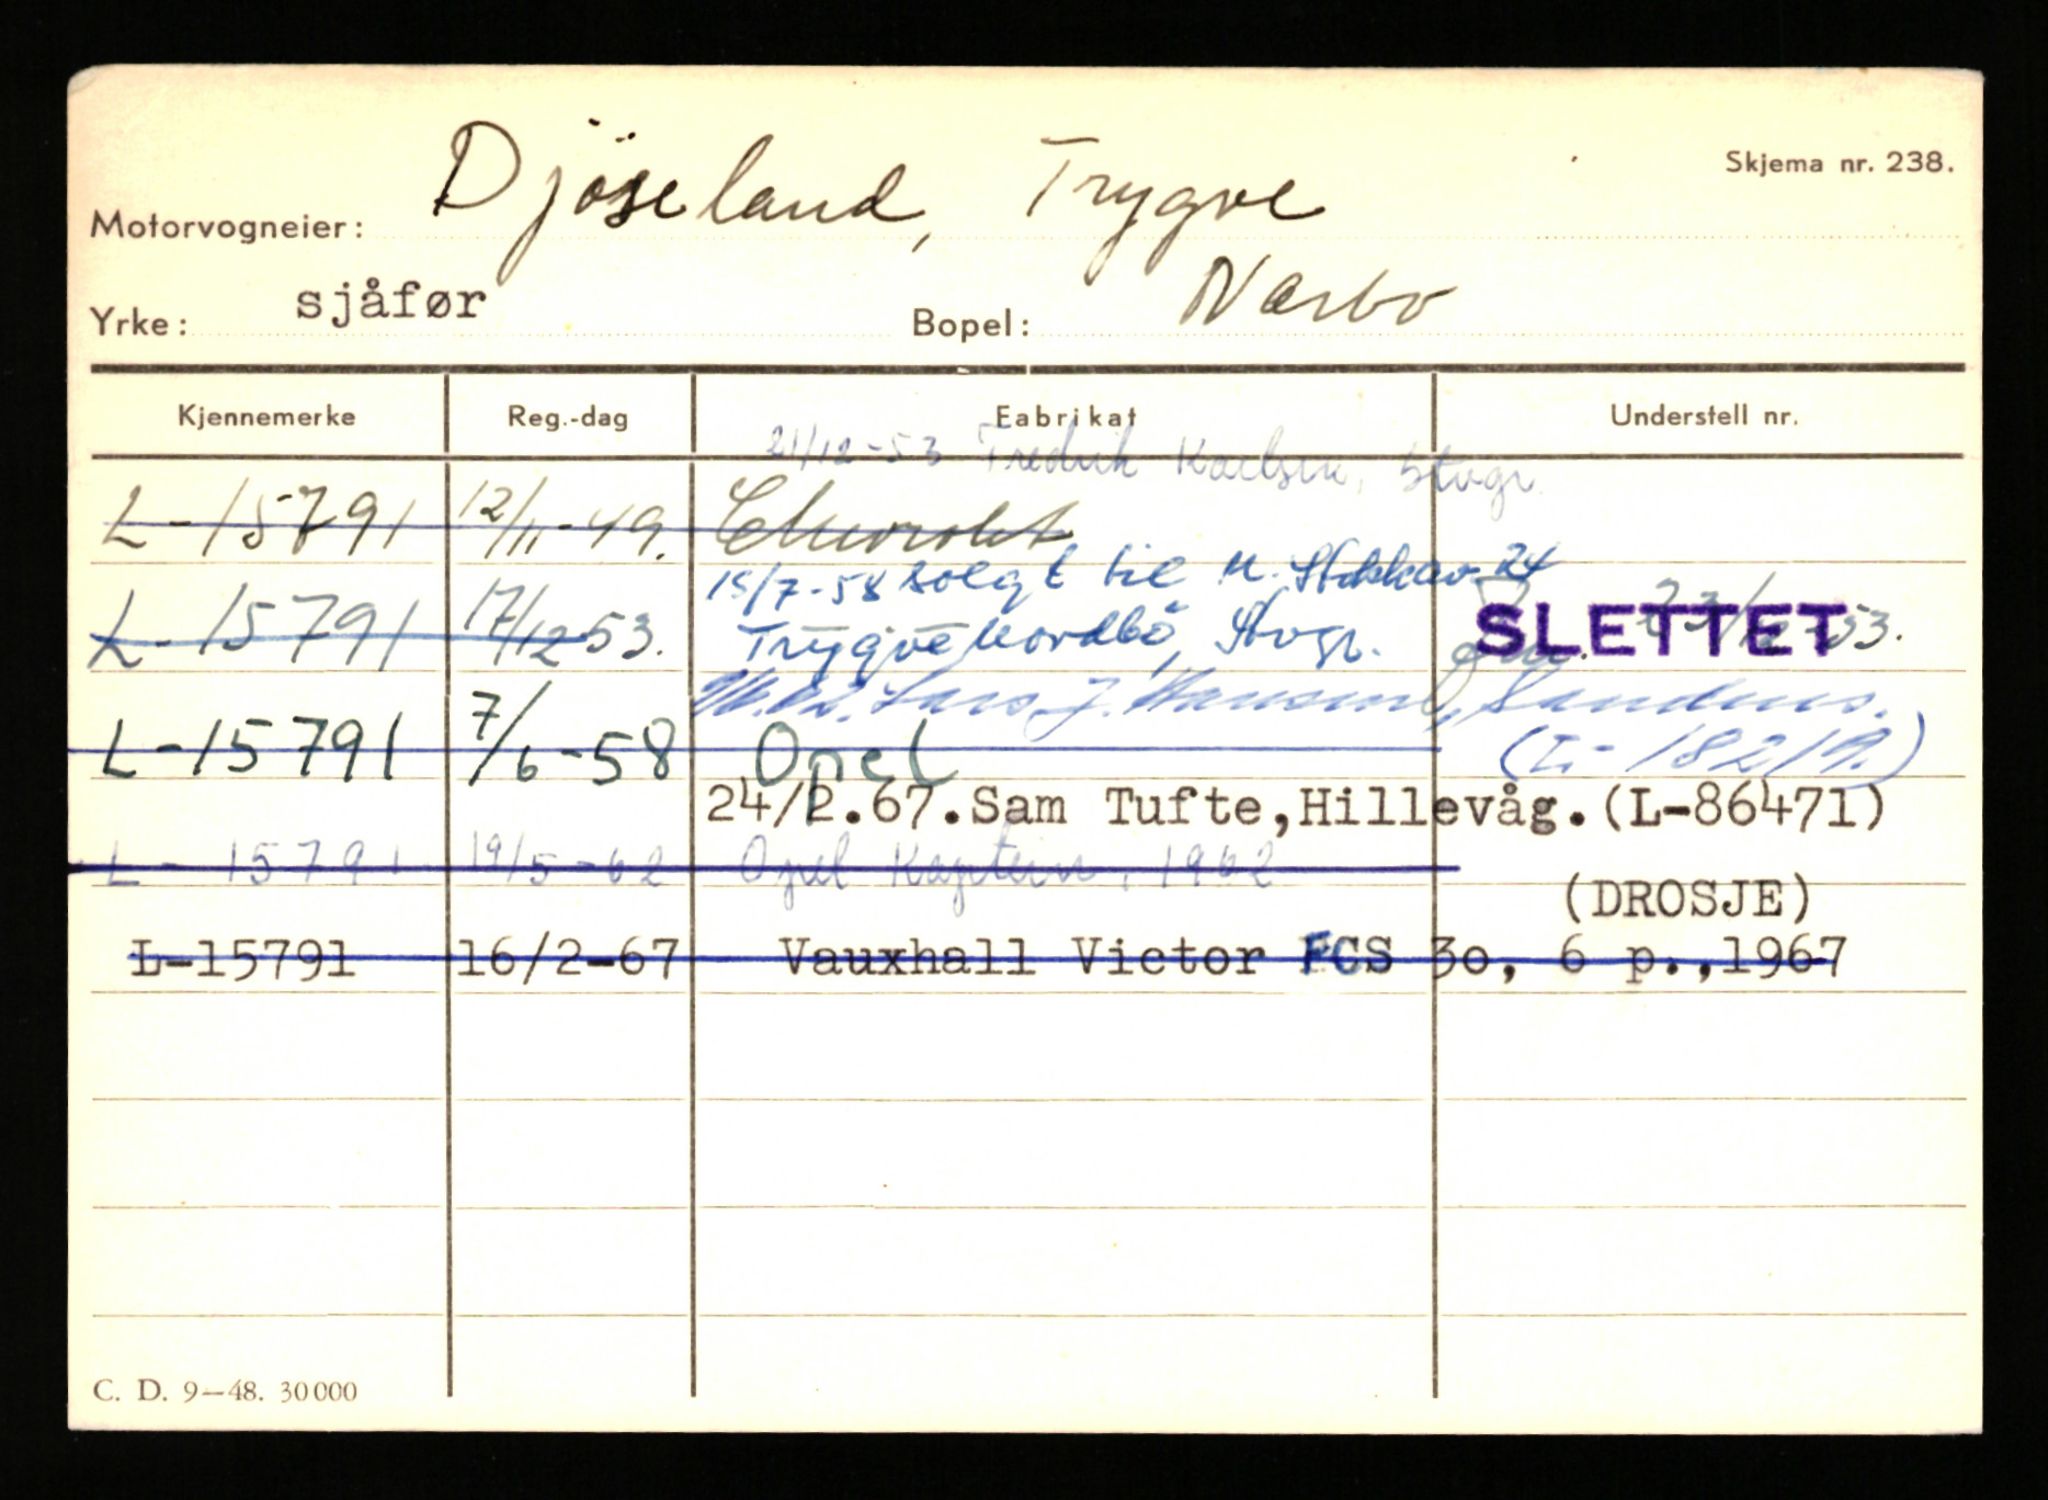 Skjema nr. 238.
Motorvogneier: Djöseland, Trygve
Yrke: sjåfør Bopel: Nærbø
Kjennemerke Reg.-dag Fabrikat Understell nr.
21/12-53 Fredrik Karlsen, Stvgr.
L-15791 12/11-49. Chevrolet
15/7-58 solgt til
L-15791 17/12 53. Trygve Nordbö, Stvgr. SLETTET
Lars J. Hansen, Sandnes.
L-15791 7/6-58 Opel (L-18219.)
24/2.67.Sam Tufte,Hillevåg.(L-86471)
L-15791 19/5-62 Opel Kaptein, 1962
(DROSJE)
L-15791 16/2-67 Vauxhall Victor FCS 3o, 6 p.,1967
C. D. 9—48. 30000